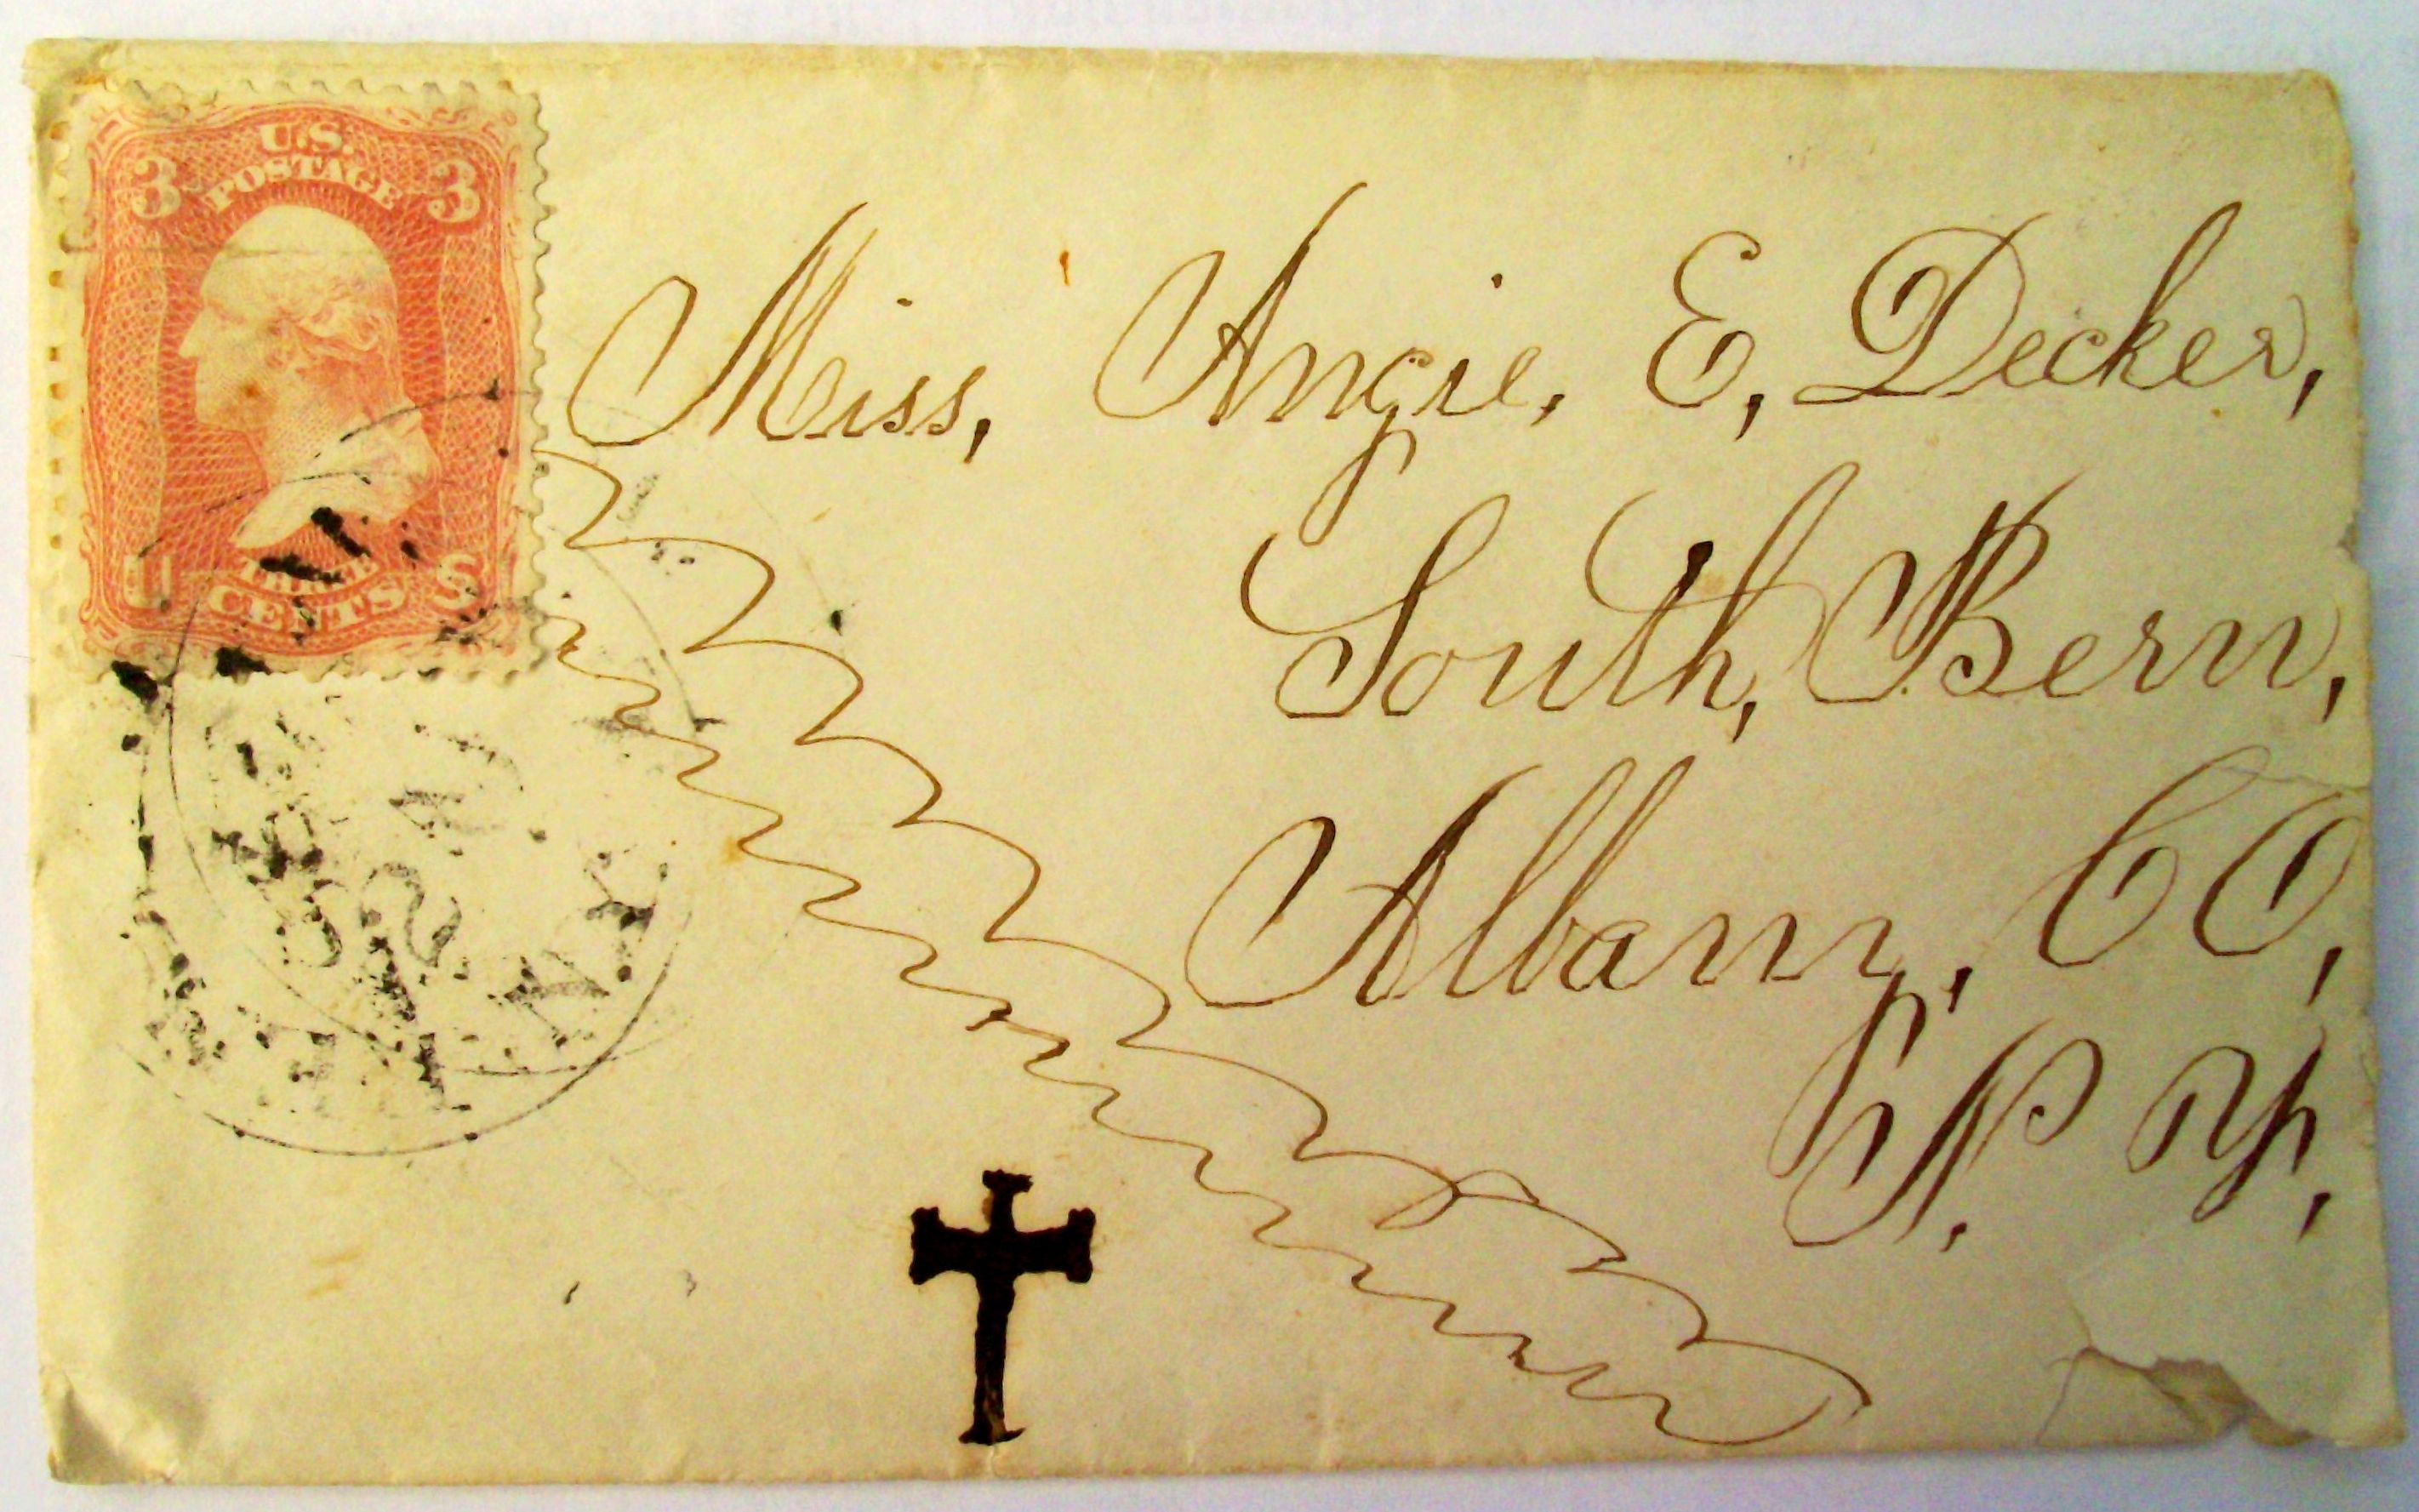 U.S.
POSTAGE
3 3
U S
THREE
CENTS
Miss, Angie, E, Decker,
South, Bern,
Albany, CO,
N. Y,